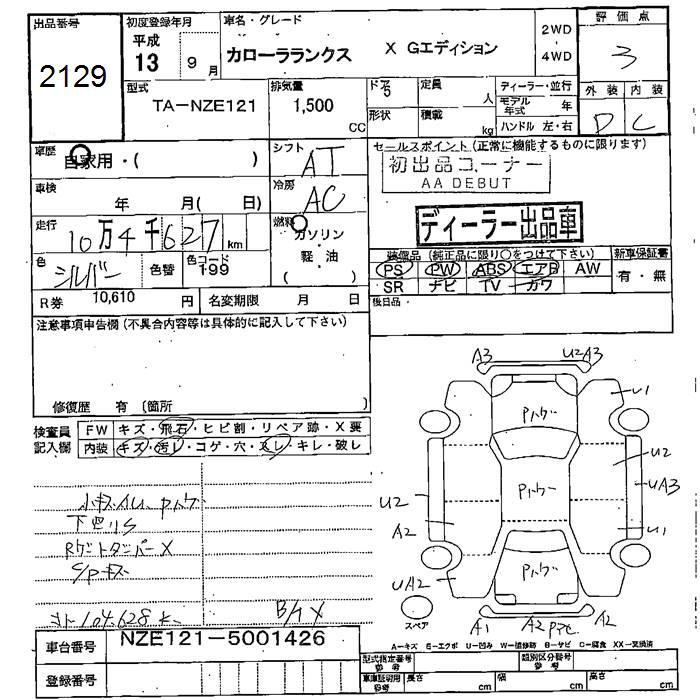 出品番号
2129
初度登録年月
平成
13 9月
車名・グレード
カローラランクス X Gエディション
2WD
4WD
評価点
3
型式
TA-NZE121
排気量
1,500
CC
ドア
5
形状
定員
人
積載
kg
ディーラー・並行
モデル年式 年
ハンドル 左・右
外装 内装
D C
車歴
自家用・( )
シフト
AT
セールスポイント(正常に機能するものに限ります)
初出品コーナー
AA DEBUT
車検
年 月( 日)
冷房
AC
ディーラー出品車
走行
10万4千627km
燃料
ガソリン・
軽・油
( )
装備品(純正品に限り○をつけて下さい)
新車保証書
PS PW ABS エアB AW
SR ナビ TV カワ
有・無
色
シルバー
色替
色コード
199
R券 10,610 円
名変期限 月 日
後日品・
注意事項申告欄(不具合内容等は具体的に記入して下さい)
修復歴 有 (箇所 )
検査員
記入欄
FW キズ・飛石・ヒビ割・リペア跡・X要
内装 キズ・汚レ・コゲ・穴・スレ・キレ・破レ
小キズ
下回リS
X
B/1 X
A3 U2A3
U1
U2
UA3
U1
U2
A2
UA2
A1 A2 A2
スペア
A-キズ E-エクボ U-凹み W-補修跡 B-サビ C-腐食 XX-交換済
車台番号
NZE121-5001426
登録番号
型式指定番号
参考
類別区分番号
参考
車庫証明用
参考
長さ cm 幅 cm 高さ cm